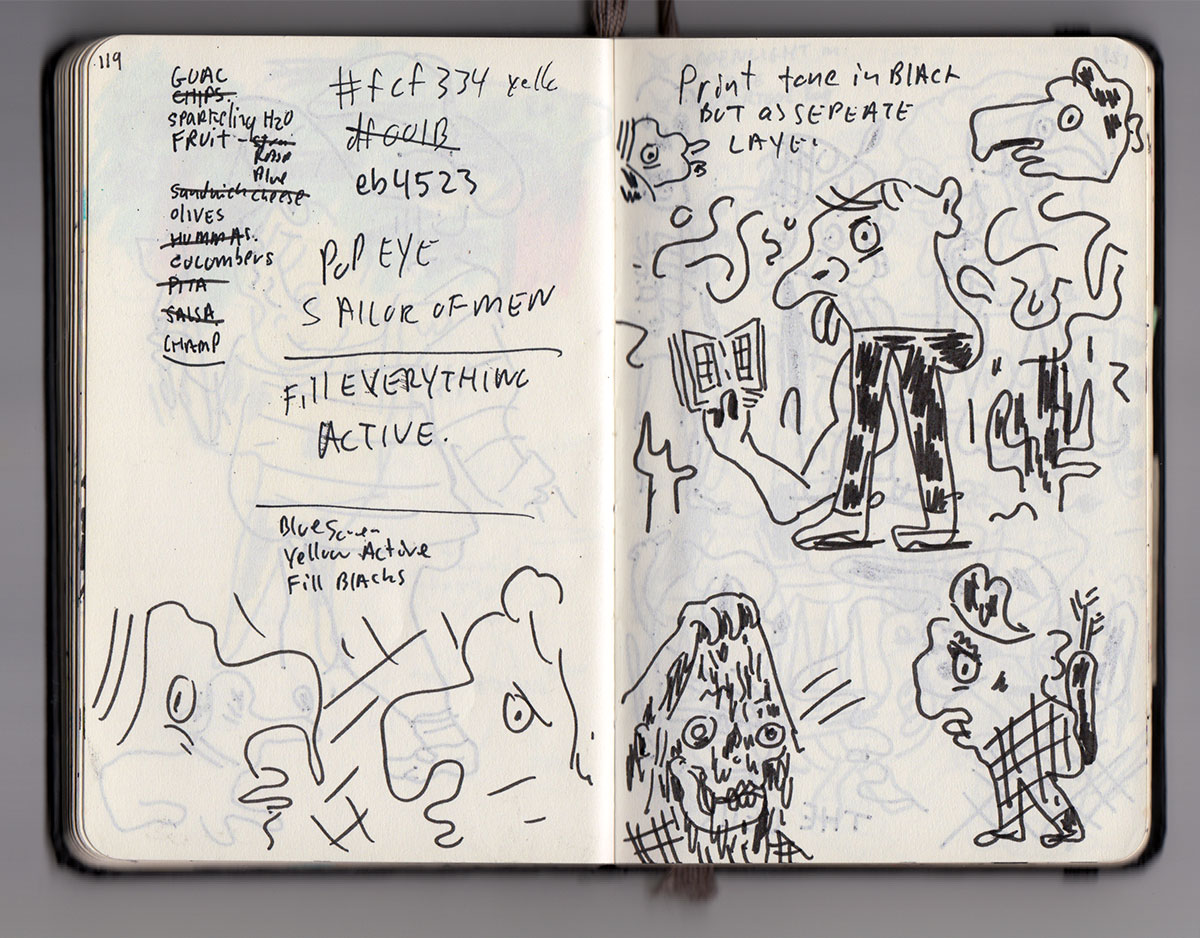 119
GUAC
CHIPS.
SPARKELING H2O
FRUIT -
RASP
Blue
Sandwich cheese
OLIVES
HUMMAS.
CUCUMBERS
PITA
SALSA.
CHAMP
#fcf334 yello
#001B
eb4523
POPEYE
SAILOR OF MEN
Fill EVERYTHING
ACTIVE.
Blue Screen
Yellow Active
Fill BlAcks
Print tone in BlACK
BUT as SEPERATE
LAYER.
THE